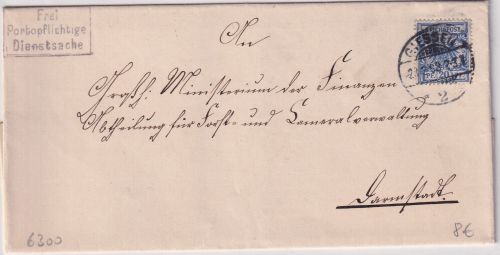 Frei
Portopflichtige
Dienstsache
An
Großh: Ministerium der Finanzen
Abtheilung für Forst- und Cameralverwaltung
Darmstadt.
6300
8€
GIESSEN
2